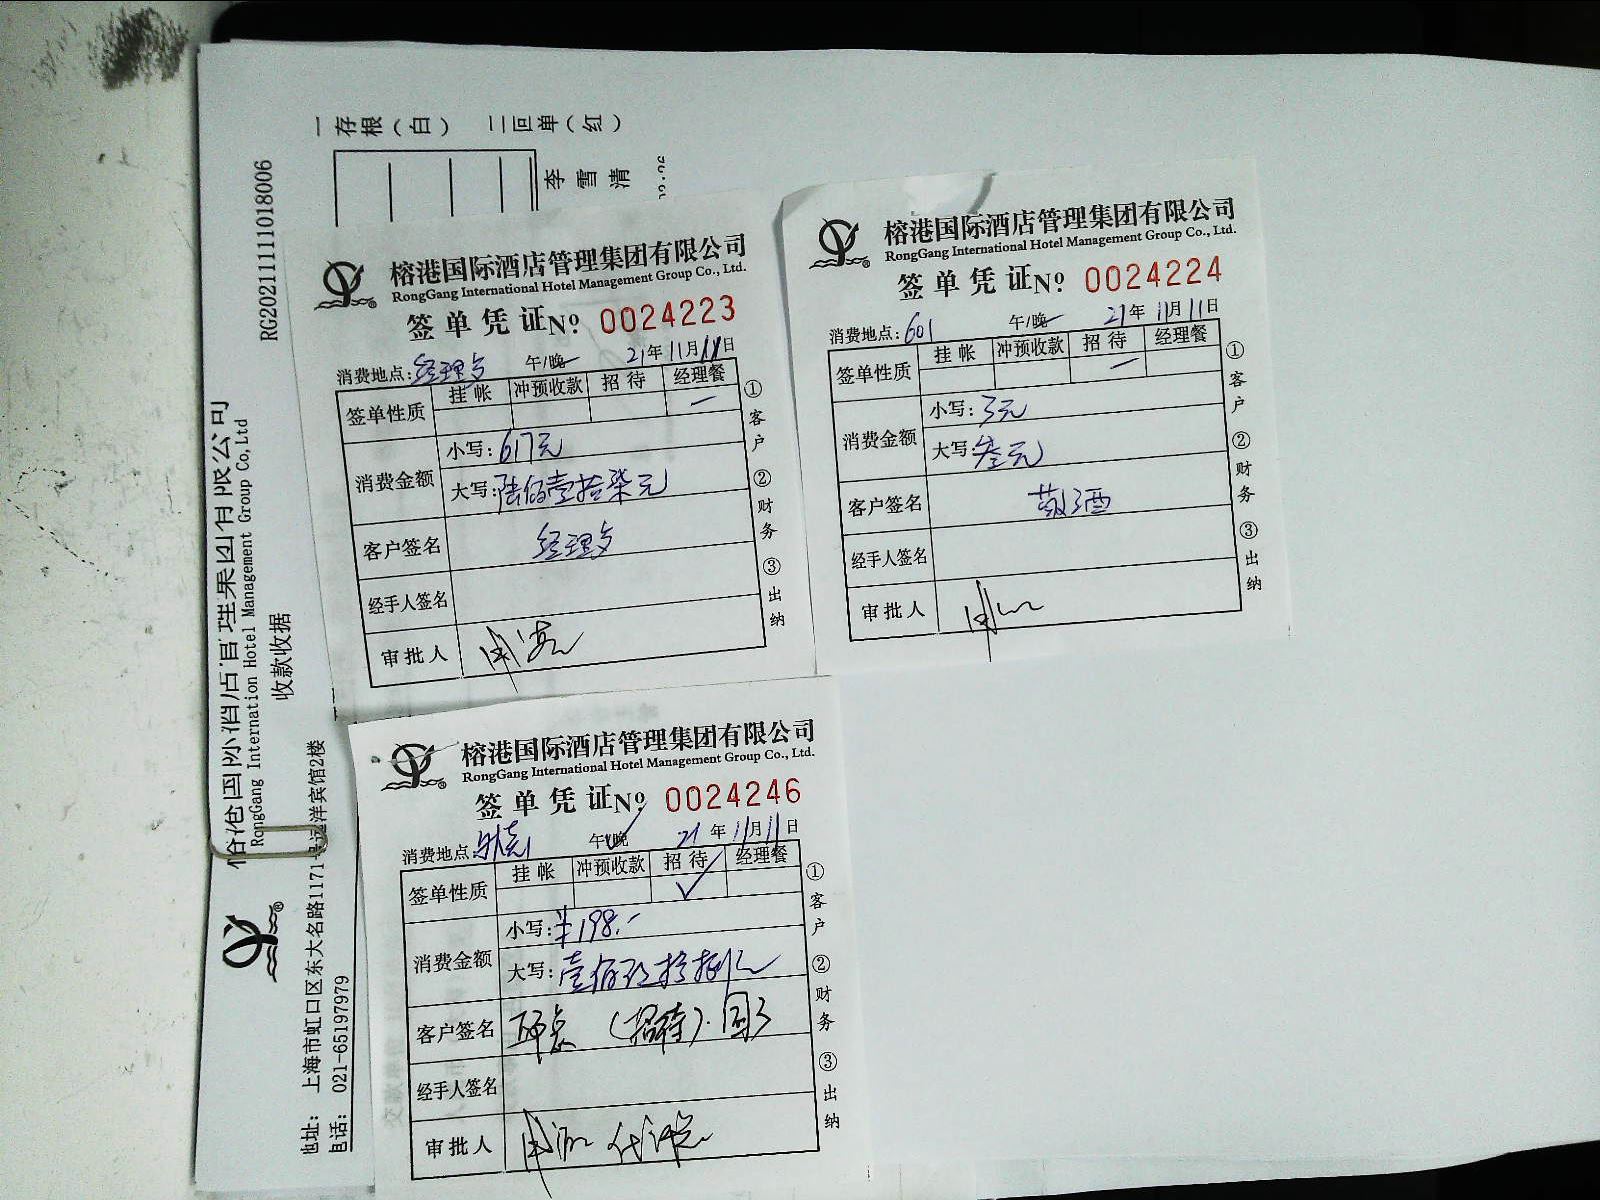 一存根（白） 二回单（红）
李雪清
RG20211111018006
榕港国际酒店管理集团有限公司
RongGang Internation Hotel Management Group Co,Ltd
收款收据
地址： 上海市虹口区东大名路1171号远洋宾馆2楼
电话： 021-65197979
榕港国际酒店管理集团有限公司
RongGang International Hotel Management Group Co., Ltd.
签单凭证 Nº 0024223
消费地点: 午/晚 21年11月11日
签单性质 挂帐 冲预收款 招待 经理餐
消费金额 小写: 617元
大写: 陆佰壹拾柒元
客户签名
经手人签名
审批人
①客户 ②财务 ③出纳
榕港国际酒店管理集团有限公司
RongGang International Hotel Management Group Co., Ltd.
签单凭证 Nº 0024224
消费地点: 601 午/晚 21年11月11日
签单性质 挂帐 冲预收款 招待 经理餐
消费金额 小写: 3元
大写: 叁元
客户签名
经手人签名
审批人
①客户 ②财务 ③出纳
榕港国际酒店管理集团有限公司
RongGang International Hotel Management Group Co., Ltd.
签单凭证 Nº 0024246
消费地点 午/晚 21年11月11日
签单性质 挂帐 冲预收款 招待 经理餐
消费金额 小写: ¥198.-
大写: 壹佰玖拾捌元
客户签名 （招待）
经手人签名
审批人
①客户 ②财务 ③出纳